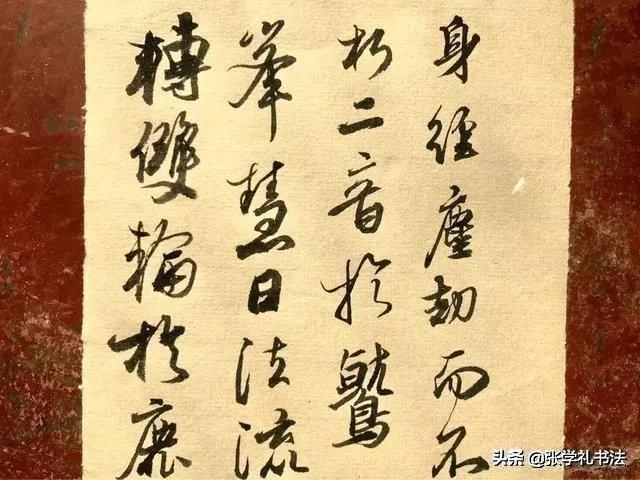 身徑塵劫而不
朽二音於鷲
峯慧日法流
轉雙輪於鹿
头条 @张学礼书法